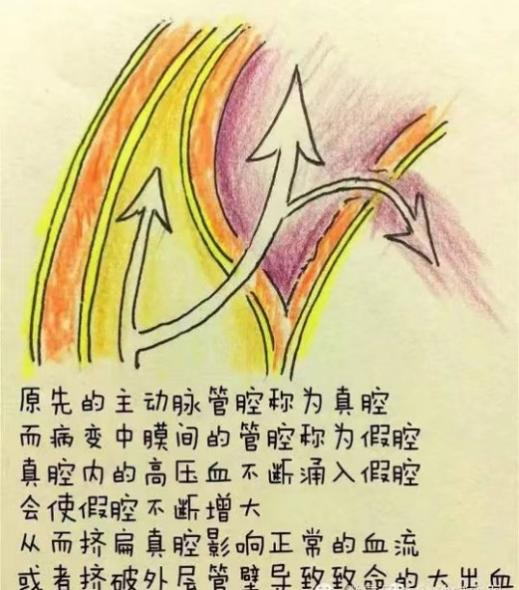 原先的主动脉管腔称为真腔
而病变中膜间的管腔称为假腔
真腔内的高压血不断涌入假腔
会使假腔不断增大
从而挤扁真腔影响正常的血流
或者挤破外层管壁导致致命的大出血